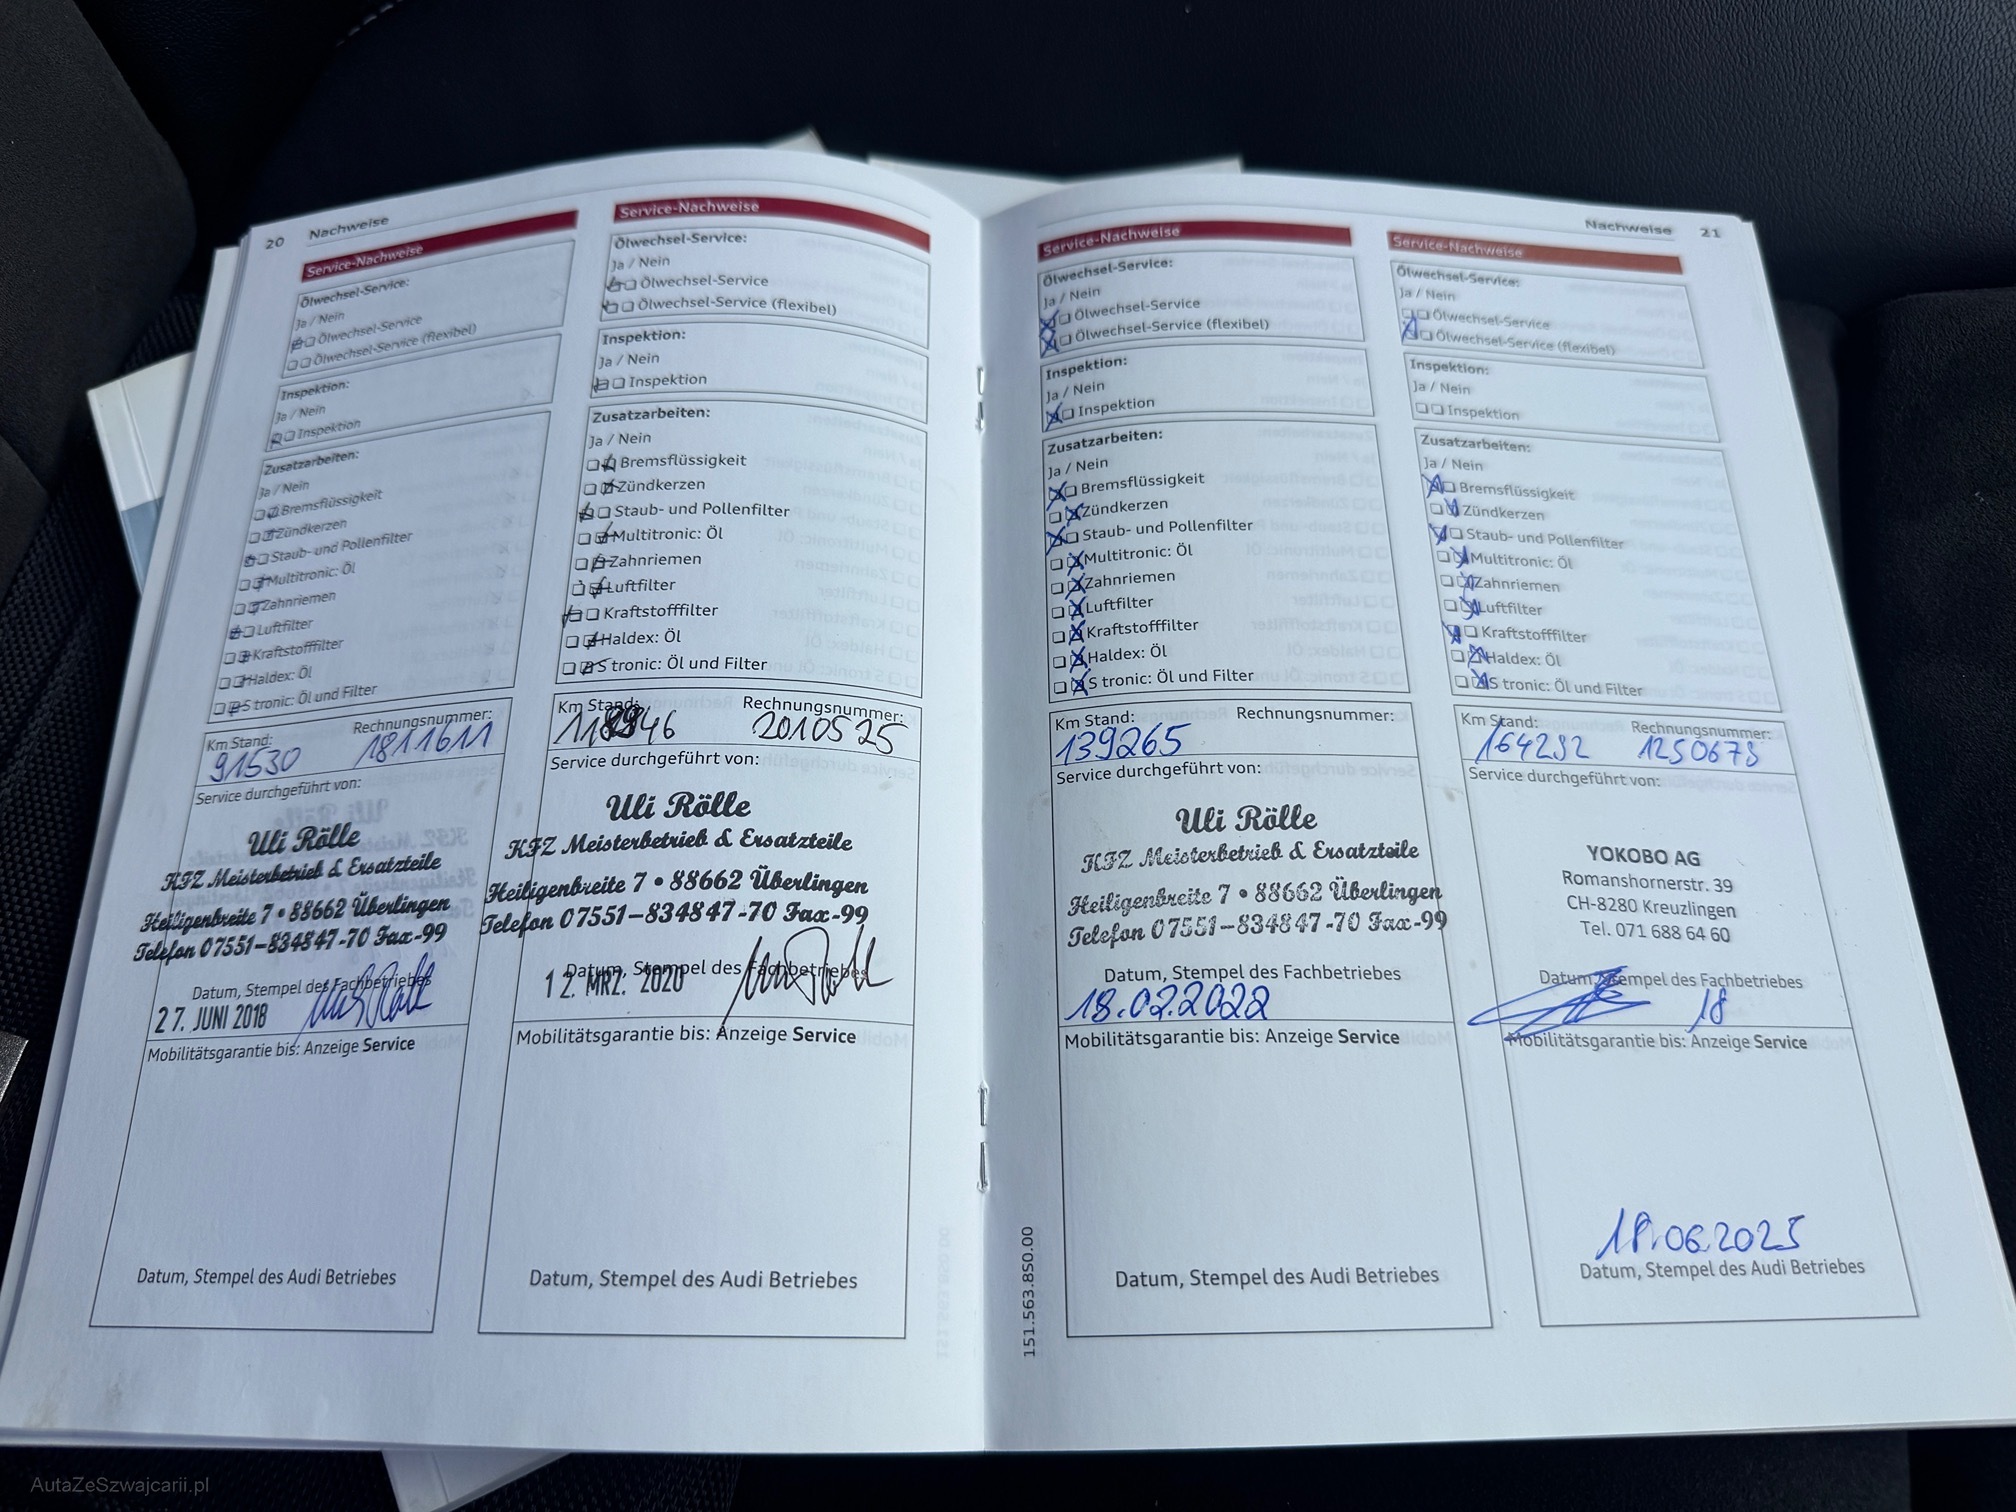 20 Nachweise
Service-Nachweise
Ölwechsel-Service:
Ja / Nein
Ölwechsel-Service
Ölwechsel-Service (flexibel)
Inspektion:
Ja / Nein
Inspektion
Zusatzarbeiten:
Ja / Nein
Bremsflüssigkeit
Zündkerzen
Staub- und Pollenfilter
Multitronic: Öl
Zahnriemen
Luftfilter
Kraftstofffilter
Haldex: Öl
S tronic: Öl und Filter
Km Stand: Rechnungsnummer:
91530 1811611
Service durchgeführt von:
Uli Rölle
KFZ Meisterbetrieb & Ersatzteile
Heiligenbreite 7 • 88662 Überlingen
Telefon 07551-834847-70 Fax-99
Datum, Stempel des Fachbetriebes
27. JUNI 2018
Mobilitätsgarantie bis: Anzeige Service
Datum, Stempel des Audi Betriebes
Service-Nachweise
Ölwechsel-Service:
Ja / Nein
Ölwechsel-Service
Ölwechsel-Service (flexibel)
Inspektion:
Ja / Nein
Inspektion
Zusatzarbeiten:
Ja / Nein
Bremsflüssigkeit
Zündkerzen
Staub- und Pollenfilter
Multitronic: Öl
Zahnriemen
Luftfilter
Kraftstofffilter
Haldex: Öl
S tronic: Öl und Filter
Km Stand: Rechnungsnummer:
2010525
Service durchgeführt von:
Uli Rölle
KFZ Meisterbetrieb & Ersatzteile
Heiligenbreite 7 • 88662 Überlingen
Telefon 07551-834847-70 Fax-99
Datum, Stempel des Fachbetriebes
12. MRZ. 2020
Mobilitätsgarantie bis: Anzeige Service
Datum, Stempel des Audi Betriebes
Nachweise 21
Service-Nachweise
Ölwechsel-Service:
Ja / Nein
Ölwechsel-Service
Ölwechsel-Service (flexibel)
Inspektion:
Ja / Nein
Inspektion
Zusatzarbeiten:
Ja / Nein
Bremsflüssigkeit
Zündkerzen
Staub- und Pollenfilter
Multitronic: Öl
Zahnriemen
Luftfilter
Kraftstofffilter
Haldex: Öl
S tronic: Öl und Filter
Km Stand: Rechnungsnummer:
139265
Service durchgeführt von:
Uli Rölle
KFZ Meisterbetrieb & Ersatzteile
Heiligenbreite 7 • 88662 Überlingen
Telefon 07551-834847-70 Fax-99
Datum, Stempel des Fachbetriebes
18.02.2022
Mobilitätsgarantie bis: Anzeige Service
Datum, Stempel des Audi Betriebes
151.563.850.00
Service-Nachweise
Ölwechsel-Service:
Ja / Nein
Ölwechsel-Service
Ölwechsel-Service (flexibel)
Inspektion:
Ja / Nein
Inspektion
Zusatzarbeiten:
Ja / Nein
Bremsflüssigkeit
Zündkerzen
Staub- und Pollenfilter
Multitronic: Öl
Zahnriemen
Luftfilter
Kraftstofffilter
Haldex: Öl
S tronic: Öl und Filter
Km Stand: Rechnungsnummer:
164232 1250678
Service durchgeführt von:
YOKOBO AG
Romanshornerstr. 39
CH-8280 Kreuzlingen
Tel. 071 688 64 60
Datum, Stempel des Fachbetriebes
18
Mobilitätsgarantie bis: Anzeige Service
18.06.2025
Datum, Stempel des Audi Betriebes
AutaZeSzwajcarii.pl